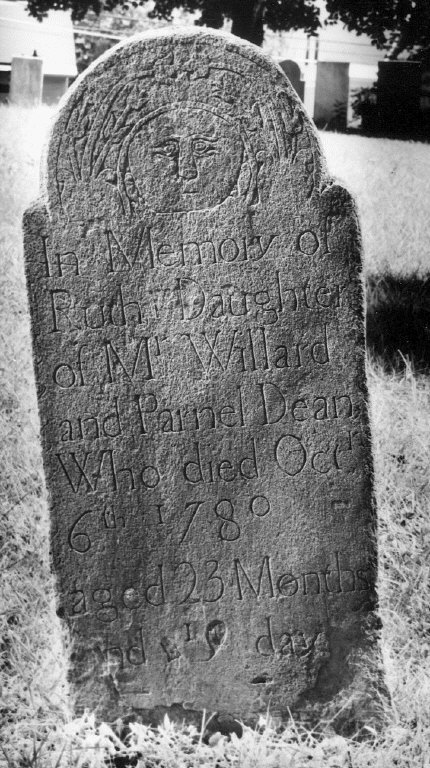 In Memory of
Ruth yᵉ Daughter
of Mʳ Willard
and Parnel Dean
Who died Octʳ
6th 1780
aged 23 Months
and 19 days